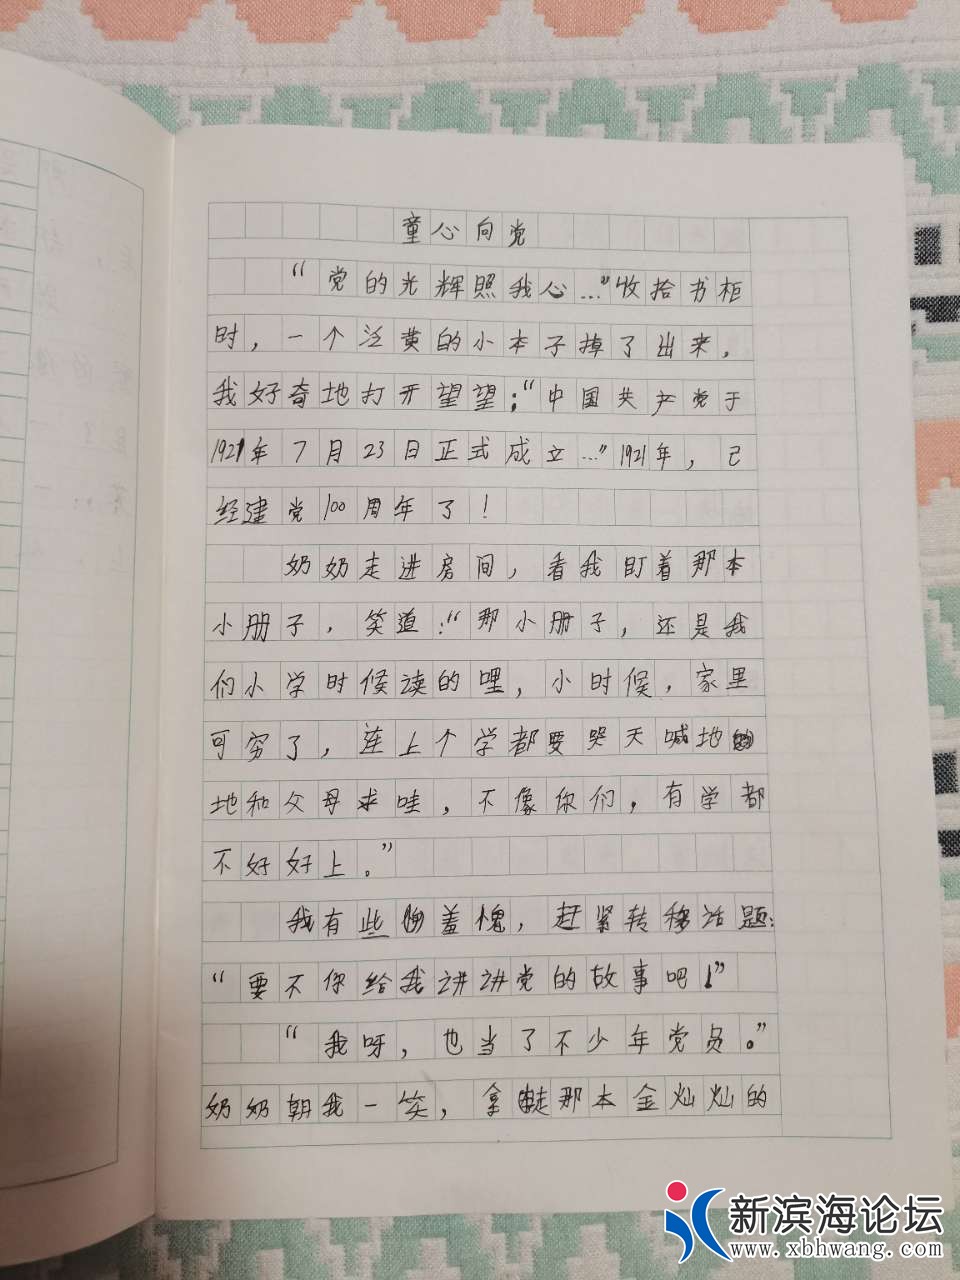 童心向党
“党的光辉照我心…”收拾书柜
时，一个泛黄的小本子掉了出来，
我好奇地打开望望；“中国共产党于
1921年7月23日正式成立…”1921年，已
经建党100周年了！
奶奶走进房间，看我盯着那本
小册子，笑道：“那小册子，还是我
们小学时候读的哩，小时候，家里
可穷了，连上个学都要哭天喊地
地和父母求哇，不像你们，有学都
不好好上。”
我有些羞愧，赶紧转移话题：
“要不你给我讲讲党的故事吧！”
“我呀，也当了不少年党员。”
奶奶朝我一笑，拿走那本金灿灿的
新滨海论坛
www.xbhwang.com